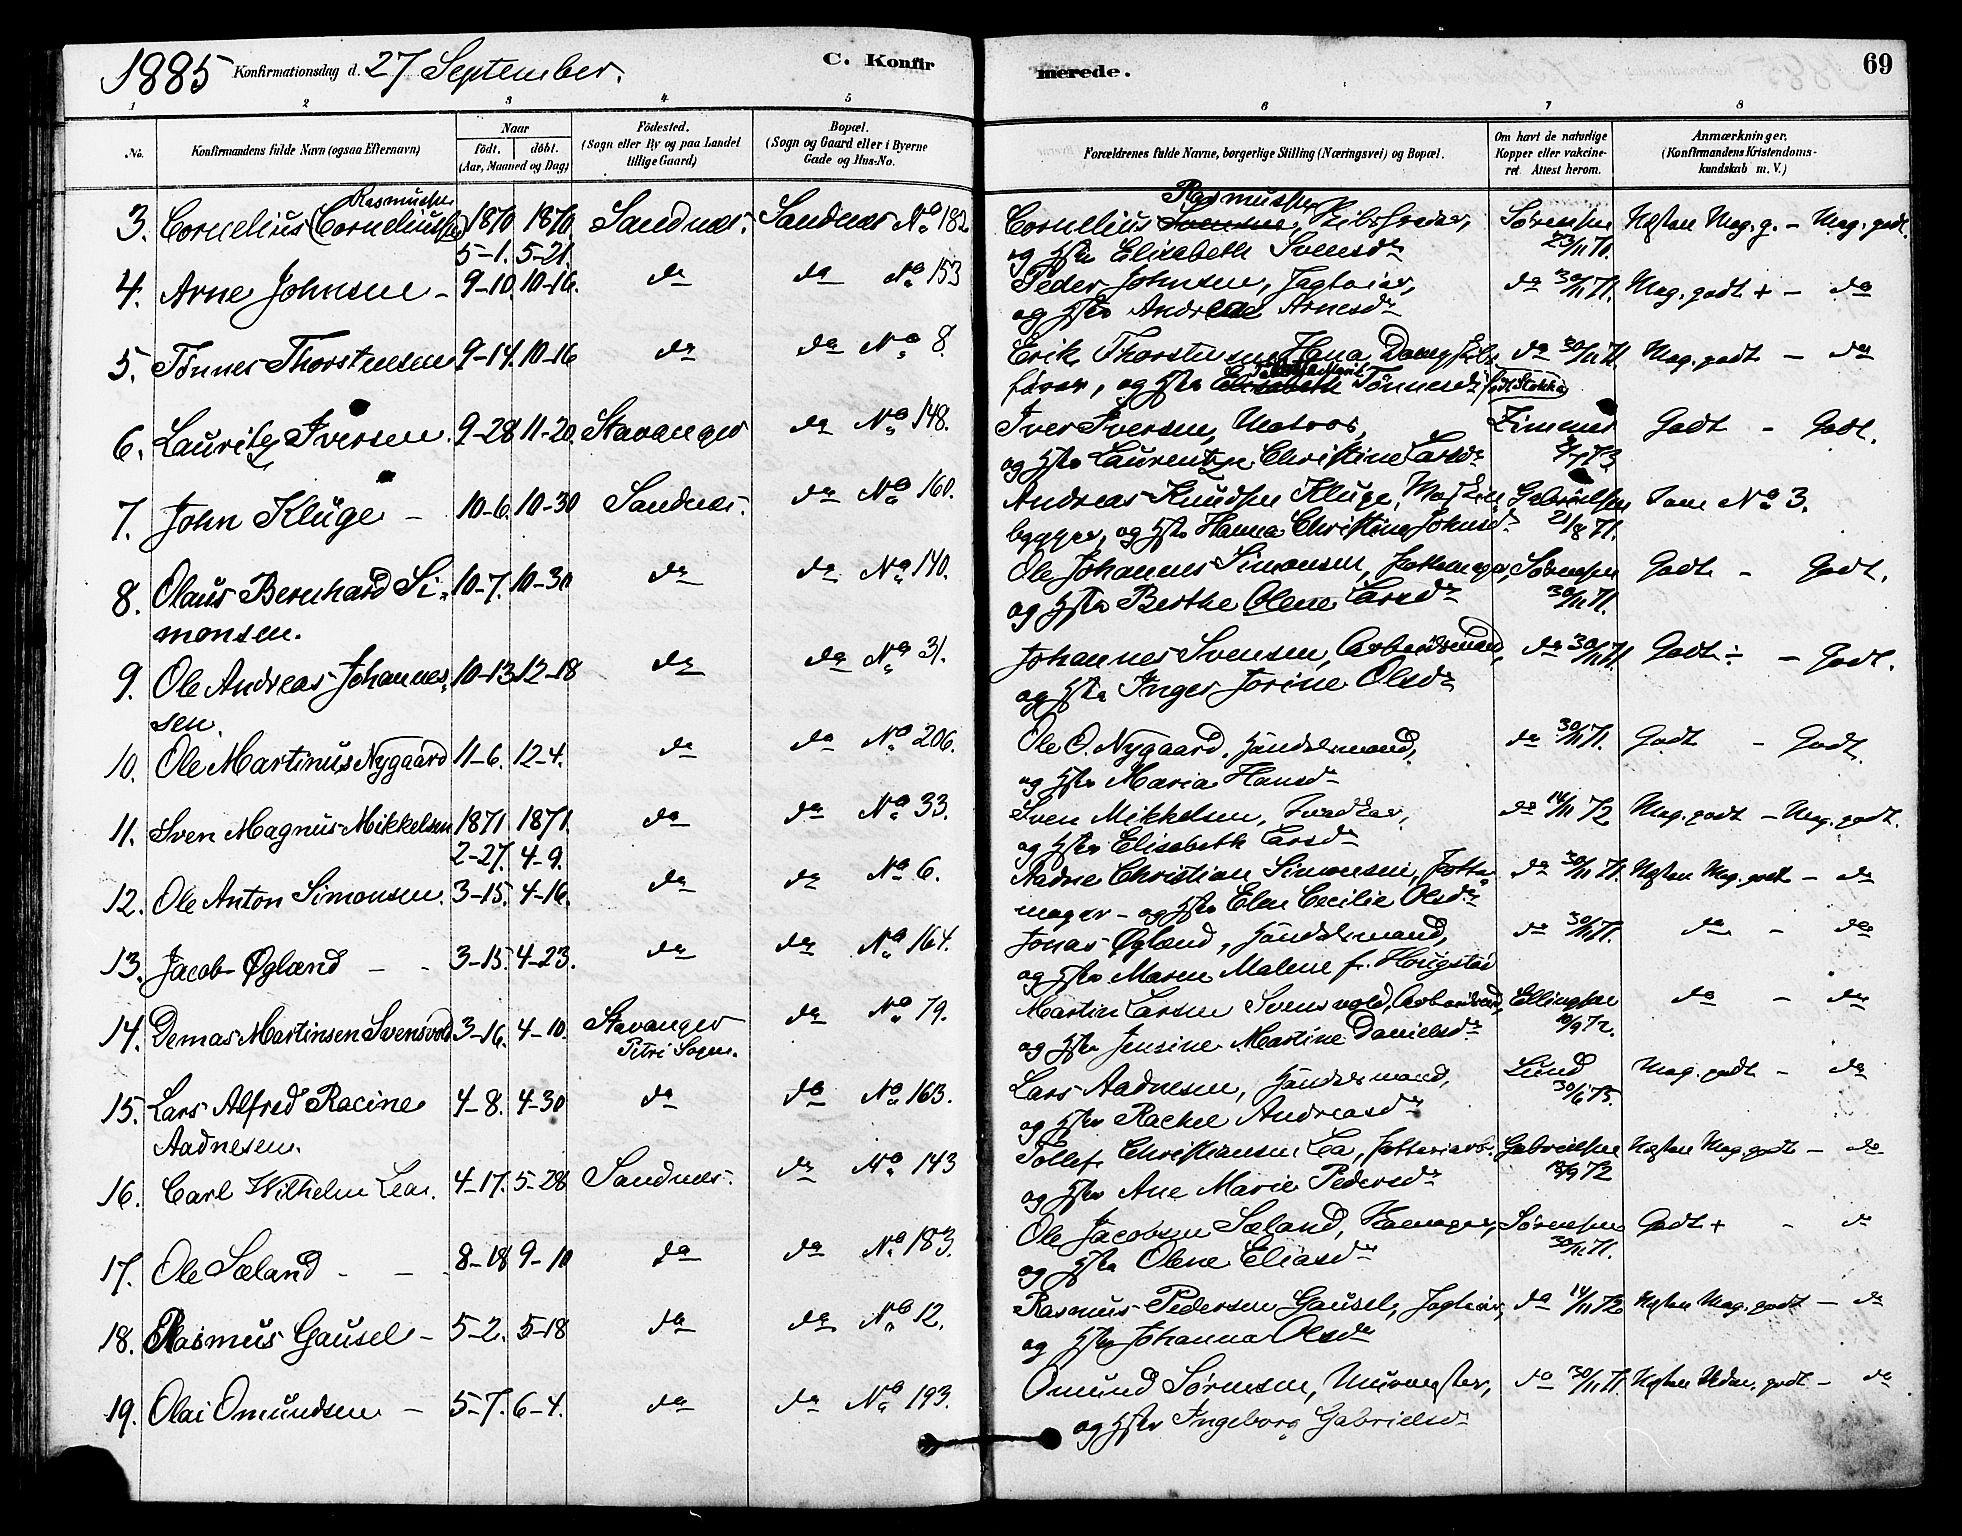 1885 Konfirmationsdag d. 27 September. C. Konfirmerede. 69
1 2 3 4 5 6 7 8
No. Konfirmandens fulde Navn (ogsaa Efternavn) Naar født. døbt. (Aar, Maaned og Dag) Fødested. (Sogn eller By og paa Landet tillige Gaard) Bopæl. (Sogn og Gaard eller i Byerne Gade og Hus-No. Forældrenes fulde Navne, borgerlige Stilling (Næringsvei) og Bopæl. Om havt de naturlige Kopper eller vakcineret. Attest herom. Anmærkninger. (Konfirmandens Kristendomskundskab m. V.)
Rasmussen Rasmussen
3. Cornelius (Corneliussen) 1870 1870 Sandnæs. Sandnæs No. 182 Cornelius Svensen, Sørensen Næsten Meg. g. - Meg. godt.
5-1. 5-21. og Hstr Elisabeth Svensdr 23/11 71.
4. Arne Johnsen - 9-10. 10-16. do do No. 153 Peder Johnsen, Jagteier, do 30/11 71. Meg. godt + - do
og Hstr Andrea Arnesdr
5. Tönnes Thorstensen 9-14. 10-16 do do No. 8. Erik Thorstensen Hana, do 30/11 71. Meg. godt - do
fører, og Hstr Elisabeth Tönnesdr født Stokka
6. Lauritz Iversen. 9-28 11-20. Stavanger do No. 148. Iver Iversen, Matros, Zimmer Godt - Godt.
og Hstr Laurentze Christine Larsdr
7. John Kluge - 10-6. 10-30 Sandnæs. do No. 160. Andreas Knudsen Kluge, Maskin- Gabrielsen Som No. 3.
bygger, og Hstr Hanna Christine Johnsdr 21/8 71.
8. Olaus Bernhard Si- 10-7. 10-30 do do No. 140. Ole Johannes Simonsen, Pottemager, Sørensen Godt - Godt.
monsen. og Hstr Berthe Olene Larsdr 30/11 71.
9. Ole Andreas Johannes- 10-13. 12-18 do do No. 31. Johannes Svensen, Arbeidsmand, do 30/11 71 Godt ÷ - Godt.
sen. og Hstr Inger Jorine Olsdr
10. Ole Martinus Nygaard 11-6. 12-4. do do No. 206. Ole O. Nygaard, Handelsmand, do 30/11 71. Godt - Godt.
og Hstr Maria Hansdr
11. Sven Magnus Mikkelsen 1871. 1871. do do No. 33. Sven Mikkelsen, Snedker, do 14/11 72 Meg. godt - Meg. godt.
2-27. 4-9. og Hstr Elisabeth Larsdr
12. Ole Anton Simonsen. 3-15. 4-16. do do No. 6. Aadne Christian Simonsen, Potte- do 30/11 71. Næsten Meg. godt - do
mager - og Hstr Elen Cecilie Olsdr
13. Jacob Øglænd - - 3-15. 4-23. do do No. 164. Jonas Øglænd, Handelsmand, do 30/11 71. do - do
og Hstr Maren Malene f. Hougstad
14. Demas Martinsen Svensvold 3-16. 4-10. Stavanger do No. 79. Martin Larsen Svensvold, Arbeidsmand, Ellingsen do - do
Petri Sogn. og Hstr Jensine Martine Danielsdr 10/9 72.
15. Lars Alfred Racine 4-8. 4-30 do do No. 163. Lars Aadnesen, Handelsmand, Lund Meg. godt - do
Aadnesen. og Hstr Rachel Andreasdr 30/6 75.
16. Carl Wilhelm Lea. 4-17. 5-28 Sandnæs. do No. 143 Tollef Christiansen Lea, Potteriarb. Gabrielsen Næsten Meg. godt - do
og Hstr Ane Marie Pedersdr
17. Ole Sæland - - 8-18 9-10 do do No. 183. Ole Jacobsen Sæland, Skomager, Sørensen Godt + - do
og Hstr Olene Eliasdr 30/11 71.
18. Rasmus Gausel - 5-2. 5-18 do do No. 12. Rasmus Pedersen Gausel, Jagteier, do 14/11 72 Næsten Meg. godt - do
og Hstr Johanna Olsdr
19. Olai Omundsen - 5-7. 6-4. do do No. 193. Omund Sørensen, Murmester, do 30/11 71. Næsten Udm. godt - do
og Hstr Ingeborg Gabrielsdr